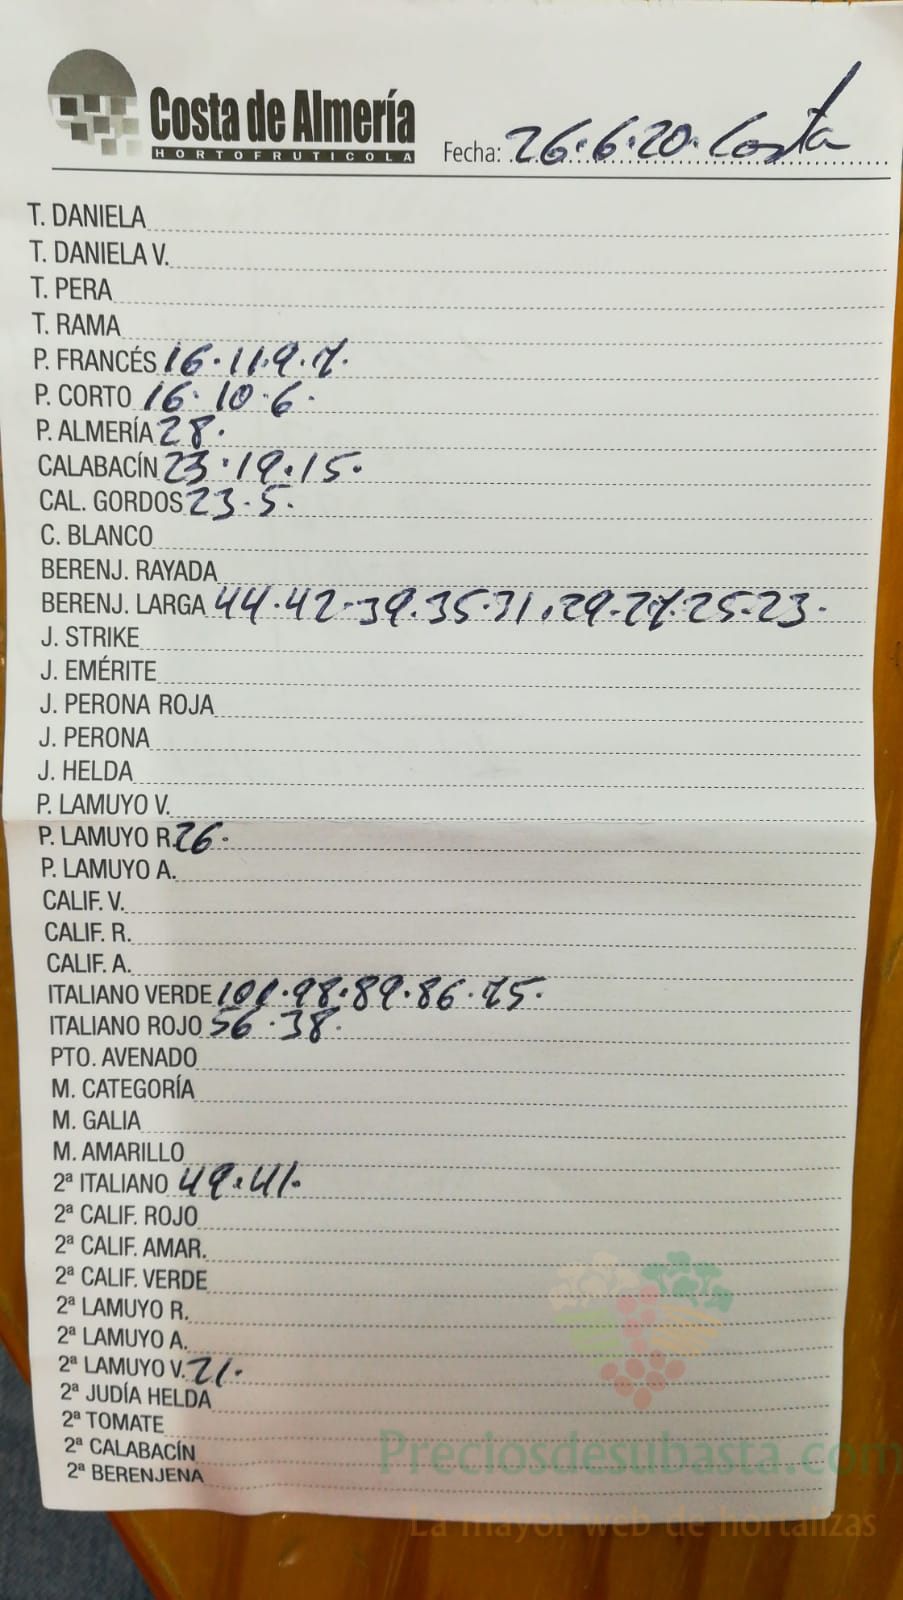 Costa de Almería
HORTOFRUTICOLA
Fecha: 26.6.20. Costa
T. DANIELA
T. DANIELA V.
T. PERA
T. RAMA
P. FRANCÉS 16.11.9.7.
P. CORTO 16.10.6.
P. ALMERÍA 28.
CALABACÍN 23.19.15.
CAL. GORDOS 23.5.
C. BLANCO
BERENJ. RAYADA
BERENJ. LARGA 44.42.39.35.31.29.27.25.23.
J. STRIKE
J. EMÉRITE
J. PERONA ROJA
J. PERONA
J. HELDA
P. LAMUYO V.
P. LAMUYO R. 26.
P. LAMUYO A.
CALIF. V.
CALIF. R.
CALIF. A.
ITALIANO VERDE 101.98.89.86.75.
ITALIANO ROJO 56.38.
PTO. AVENADO
M. CATEGORÍA
M. GALIA
M. AMARILLO
2ª ITALIANO 49.41.
2ª CALIF. ROJO
2ª CALIF. AMAR.
2ª CALIF. VERDE
2ª LAMUYO R.
2ª LAMUYO A.
2ª LAMUYO V. 21.
2ª JUDÍA HELDA
2ª TOMATE
2ª CALABACÍN
2ª BERENJENA
Preciosdesubasta.com
La mayor web de hortalizas